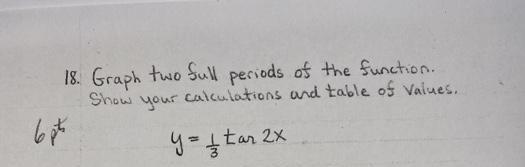 18. Graph two full periods of the function.
Show your calculations and table of values.
6 pts
y = 1/3 tan 2x